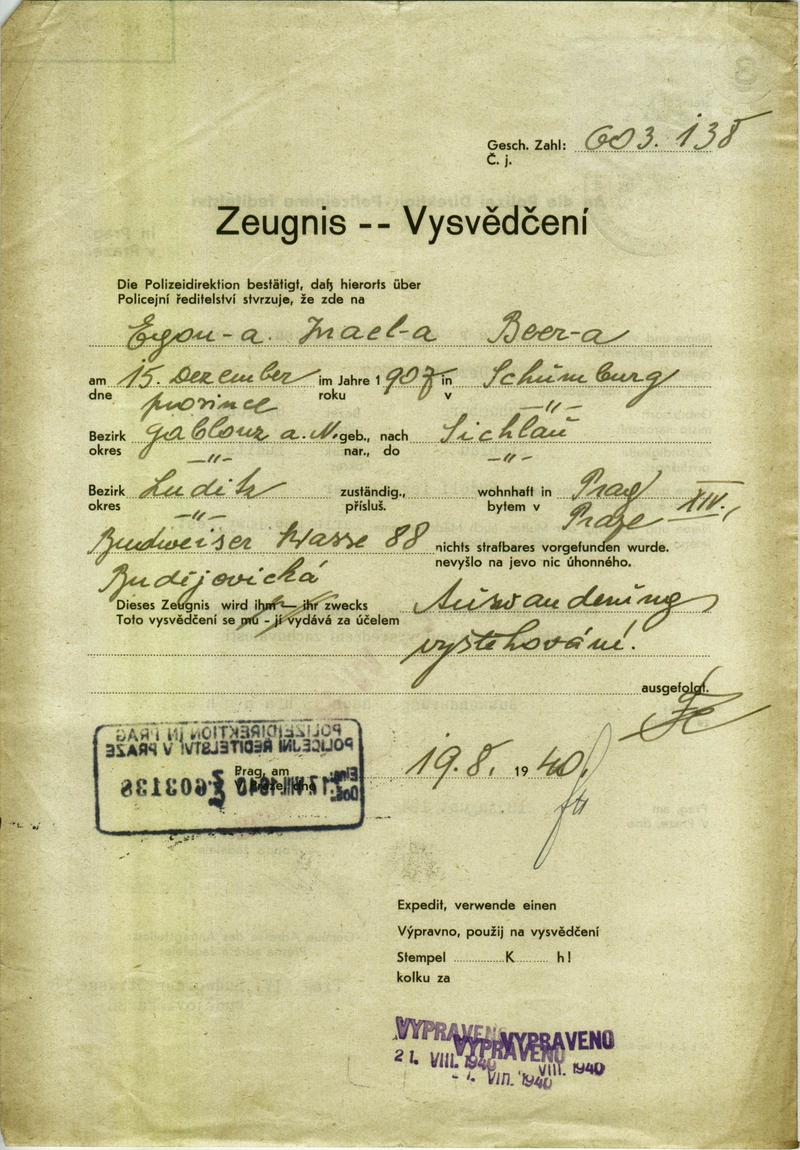 Gesch. Zahl: 603.138
Č. j.
Zeugnis -- Vysvědčení
Die Polizeidirektion bestätigt, daß hierorts über
Policejní ředitelství stvrzuje, že zde na
Egon-a. Israel-a Beer-a
am 15. Dezember im Jahre 1907 in Schumburg
dne prosince roku v -"-
Bezirk Gablonz a. N. geb., nach Sichlau
okres -"- nar., do -"-
Bezirk Luditz zuständig., wohnhaft in Prag XIV.,
okres -"- přísluš. bytem v Praze
Budweiser strasse 88 nichts strafbares vorgefunden wurde.
nevyšlo na jevo nic úhonného.
Budějovická
Dieses Zeugnis wird ihm — ihr zwecks Auswanderung
Toto vysvědčení se mu - jí vydává za účelem
vystěhování.
ausgefolgt.
POLIZEIDIREKTION IN PRAG
POLICEJNÍ ŘEDITELSTVÍ V PRAZE
Prag, am 19.8. 1940.
V Praze, dne
603138
Expedit, verwende einen
Výpravno, použij na vysvědčení
Stempel K h!
kolku za
VYPRAVENO VYPRAVENO
VYPRAVENO
21. VIII. 1940 VIII. 1940
VIII. 1940